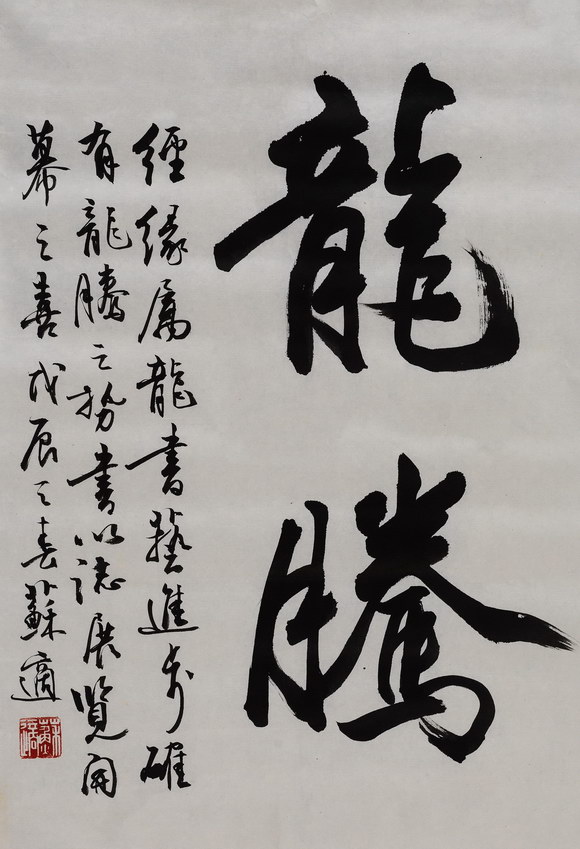 龍騰
經緣屬龍書藝進步確
有龍騰之勢書以誌展覽開
幕之喜戊辰之春蘇適